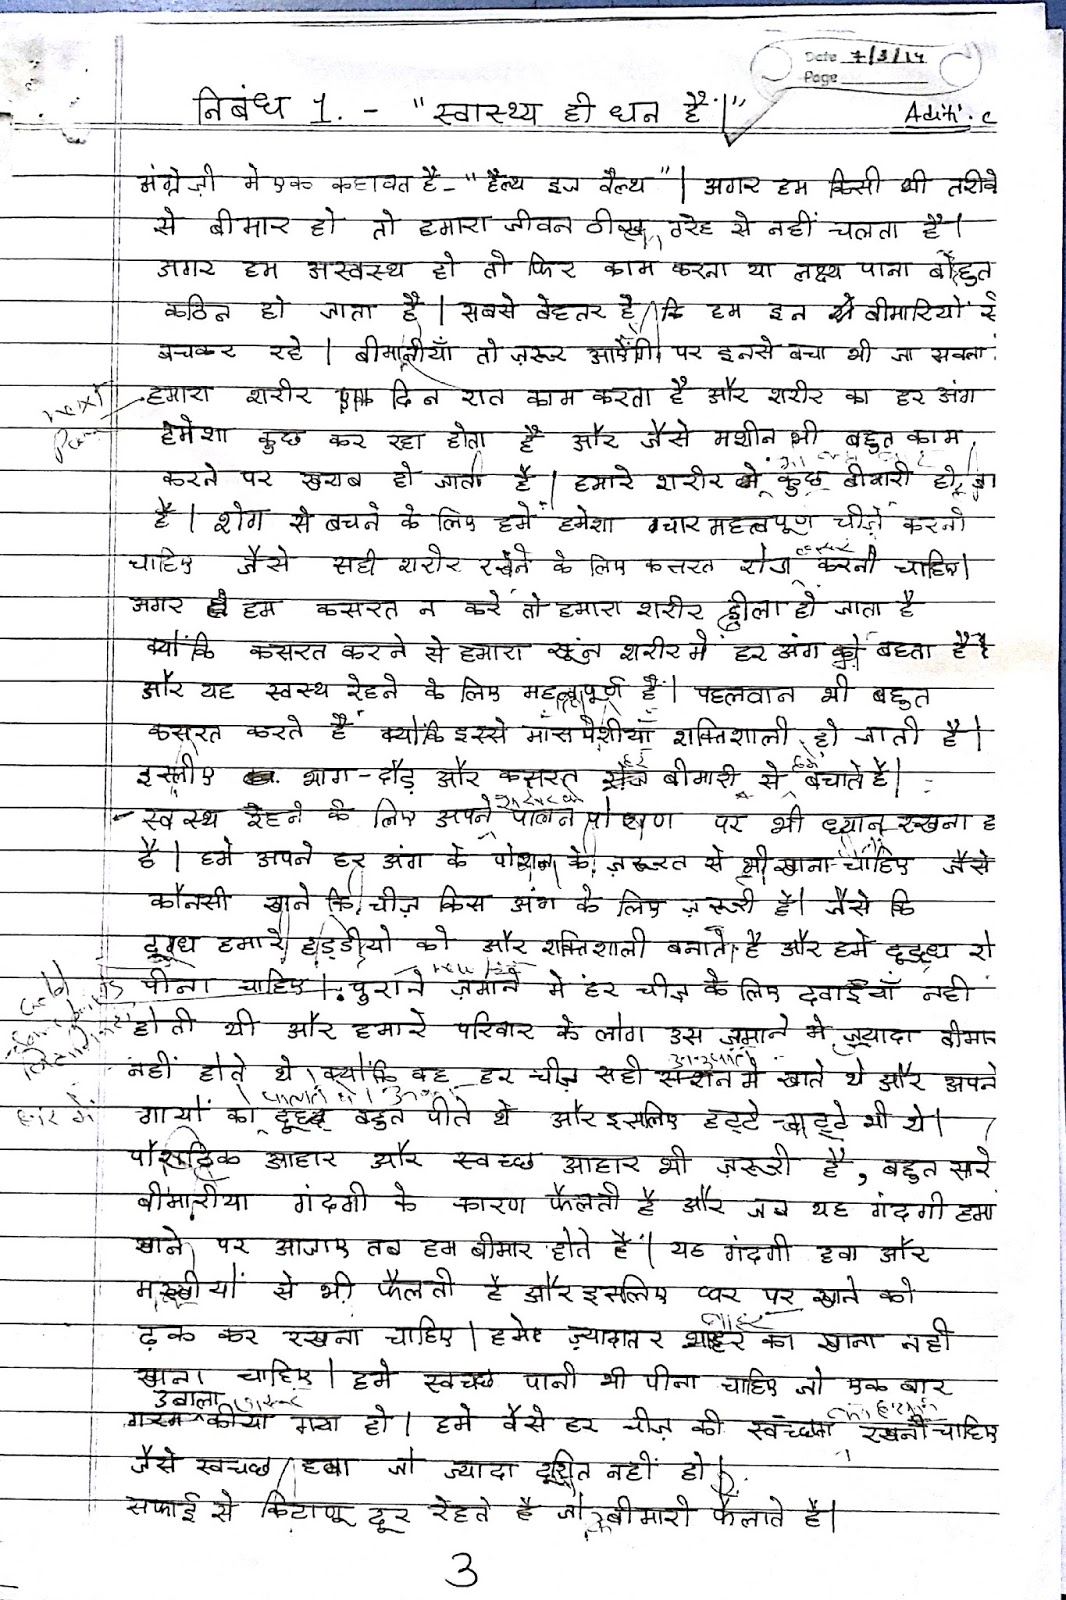 Date 7/3/14
Page
निबंध 1. - "स्वास्थ्य ही धन है।"
Aditi. c
अंग्रेज़ी मे एक कहावत है - "हैल्थ इज वैल्थ"। अगर हम किसी भी तरीके
से बीमार हो तो हमारा जीवन ठीक तरेह से नहीं चलता है।
अगर हम अस्वस्थ हो तो फिर काम करना या लक्ष्य पाना बहुत
कठिन हो जाता है। सबसे बेहतर है कि हम इन बीमारियों से
बचकर रहे। बीमारीयाँ तो ज़रूर आएँगी पर इनसे बचा भी जा सकता
Next Para
हमारा शरीर दिन रात काम करता है और शरीर का हर अंग
हमेशा कुछ कर रहा होता है और जैसे मशीन भी बहुत काम
करने पर खराब हो जाता है। हमारे शरीर मे कुछ बीमारी हो जा
है। रोग से बचने के लिए हमे हमेशा चार महत्वपूण चीज़े करनी
चाहिए जैसे सही शरीर रखेने के लिए कसरत रोज़ करनी चाहिए।
अगर हम कसरत न करे तो हमारा शरीर ढीला हो जाता है
क्योंकि कसरत करने से हमारा खून शरीर में हर अंग को बहता है
और यह स्वस्थ रेहने के लिए महत्वपूर्ण है। पहलवान भी बहुत
कसरत करते है क्योंकि इससे मांसपेशीयाँ शक्तिशाली हो जाती है।
इस्लीए भाग-दौड़ और कसरत बीमारी से बचाते है।
स्वस्थ रेहने के लिए अपने पालन पोषण पर भी ध्यान रखना ह
है। हमे अपने हर अंग के पोशन के ज़रूरत से भी खाना चाहिए जैसे
कौनसी खाने कि चीज़ किस अंग के लिए ज़रूरी है। जैसे कि
दूध हमारे हड्डीयो को और शक्तिशाली बनाते है और हमें दूध रो
पीना चाहिए। पुराने ज़माने में हर चीज़ के लिए दवाईयाँ नही
होती थी और हमारे परिवार के लोग उस ज़माने मे ज़्यादा बीमार
नहीं होते थे क्योंकि वह हर चीज़ सही मे खाते थे और अपने
गायों का दूध बहुत पीते थे और इसलिए हट्टे-कट्टे भी थे।
आहार और स्वच्छ आहार भी ज़रूरी है, बहुत सारे
बीमारीया गंदगी के कारण फैलती है और जब यह गंदगी हमा
खाने पर आजाए तब हम बीमार होते है। यह गंदगी हवा और
मख्खीयों से भी फैलती है और इसलिए घर पर खाने को
ढ़क कर रखना चाहिए। हमे ज़्यादातर बाहर का खाना नही
खाना चाहिए। हमे स्वच्छ पानी भी पीना चाहिए जो एक बार
उबाला
गरम कीया गया हो। हमे वैसे हर चीज़ की स्वच्छता रखनी चाहिए
जैसे स्वच्छ हवा जो ज्यादा दूषित नहीं हो।
सफाई से किटाणू दूर रेहते है जो बीमारी फैलाते है।
3